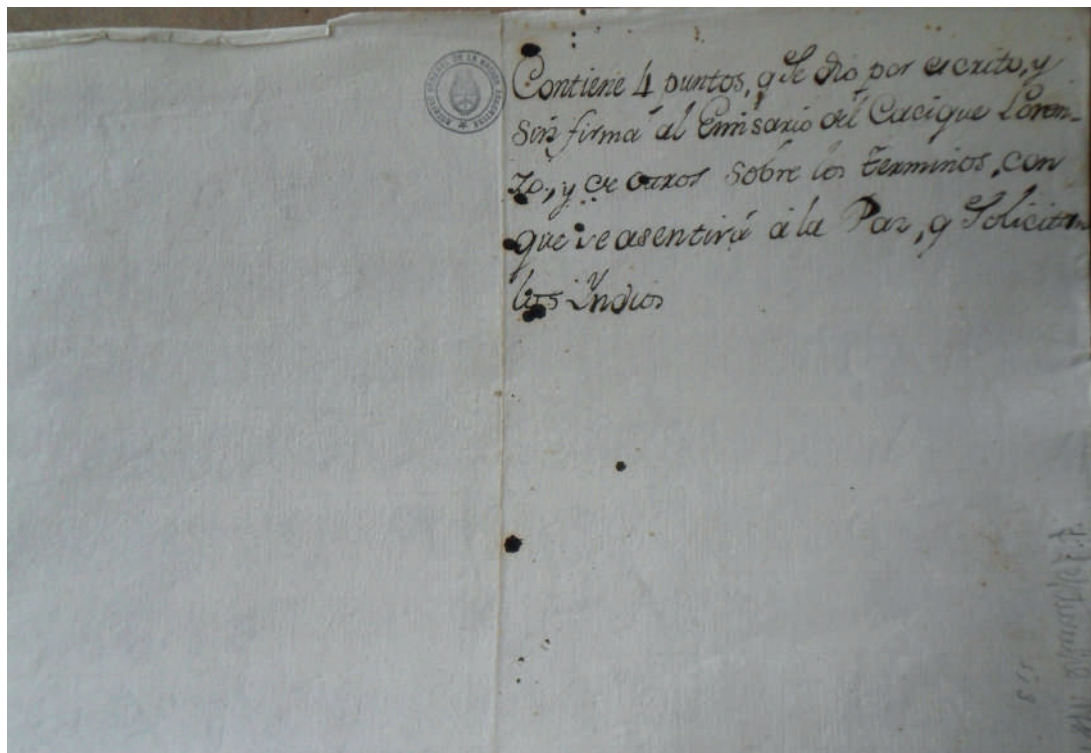 ARCHIVO GENERAL DE LA NACION ARGENTINA
Contiene 4 puntos, q Se dio por escrito, y
Sin firma al Emisario del Cacique Loren-
zo, y de otros Sobre los terminos, con
que se asentirá à la Paz, q Solicitan
los Yndios